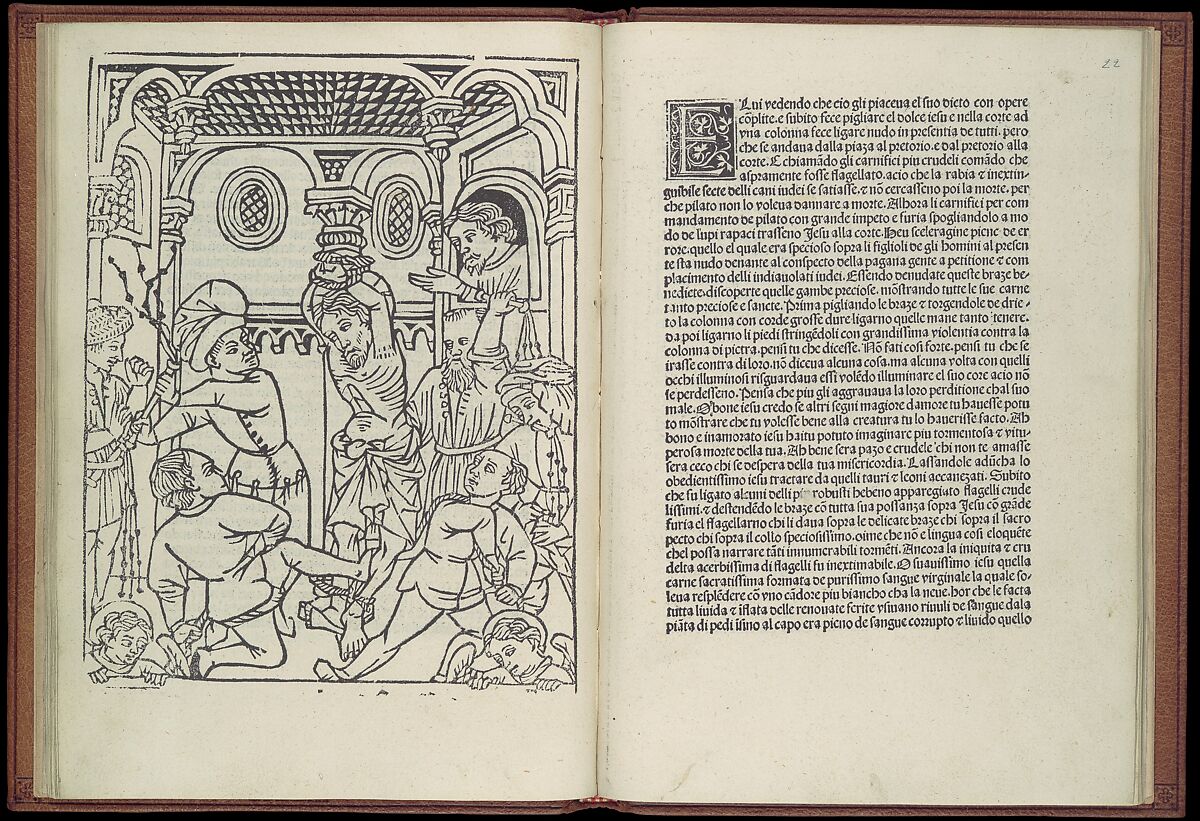 22
ELui vedendo che cio gli piaceua el suo dicto con opere
cõplite.e subito fece pigliare el dolce iesu e nella corte ad
vna colonna fece ligare nudo in presentia de tutti. pero
che se andaua dalla piaza al pretorio.e dal pretorio alla
corte. E chiamãdo gli carnifici piu crudeli comãdo che
aspramente fosse flagellato. acio che la rabia ⁊ inextin-
guibile secte delli cani iudei se satiasse. ⁊ nõ cercasseno poi la morte. per
che pilato non lo voleua dannare a morte. Alhora li carnifici per com
mandamento de pilato con grande impeto e furia spogliandolo a mo
do de lupi rapaci trasseno Jesu alla corte. Heu sceleragine piene de er
rore.quello el quale era specioso sopra li figlioli de gli homini al presen
te sta nudo denante al conspecto della pagana gente a petitione ⁊ com
placimento delli indiauolati iudei. Essendo denudate queste braze be-
nediete.discoperte quelle gambe preciose. mostrando tutte le sue carne
tanto preciose e sancte. Prima pigliando le braze ⁊ torgendole de drie-
to la colonna con corde grosse dure ligarno quelle mane tanto tenere.
da poi ligarno li piedi stringẽdoli con grandissima violentia contra la
colonna di pietra. pensi tu che dicesse. Nõ fati cosi forte. pensi tu che se
irasse contra di loro. nõ diceua alcuna cosa. ma alcuna volta con quelli
occhi illuminosi risguardaua essi volẽdo illuminare el suo core acio nõ
se perdesseno. Pensa che piu gli aggrauaua la loro perditione chal suo
male. O bone iesu credo se altri segni magiore damore tu hauesse potu
to mõstrare che tu volesse bene alla creatura tu lo hauerisse facto. Ah
bono e inamorato iesu haitu potuto imaginare piu tormentosa ⁊ vitu-
perosa morte della tua. Ah bene sera pazo e crudele chi non te amasse
sera ceco chi se despera della tua misericordia. Lassandole adũcha lo
obedientissimo iesu tractare da quelli tauri ⁊ leoni accanezati. Subito
che fu ligato alcuni delli robusti hebeno apparegiato flagelli crude
lissimi. ⁊ destendẽdo le braze cõ tutta sua possanza sopra Jesu cõ grãde
furia el flagellarno chi li daua sopra le delicate braze chi sopra il sacro
pecto chi sopra il collo speciosissimo. oime che nõ e lingua cosi eloquẽte
chel possa narrare tãti innumerabili tormẽti. Ancora la iniquita ⁊ cru
delta acerbissima di flagelli fu inextimabile. O suauissimo iesu quella
carne sacratissima formata de purissimo sangue virginale la quale so-
leua resplẽdere cõ vno cãdore piu biancho cha la neue. hor che le facta
tutta liuida ⁊ iflata delle renouate ferite vsiuano riuuli de sangue dala
piãta di pedi isino al capo era pieno de sangue corrupto ⁊ liuido quello